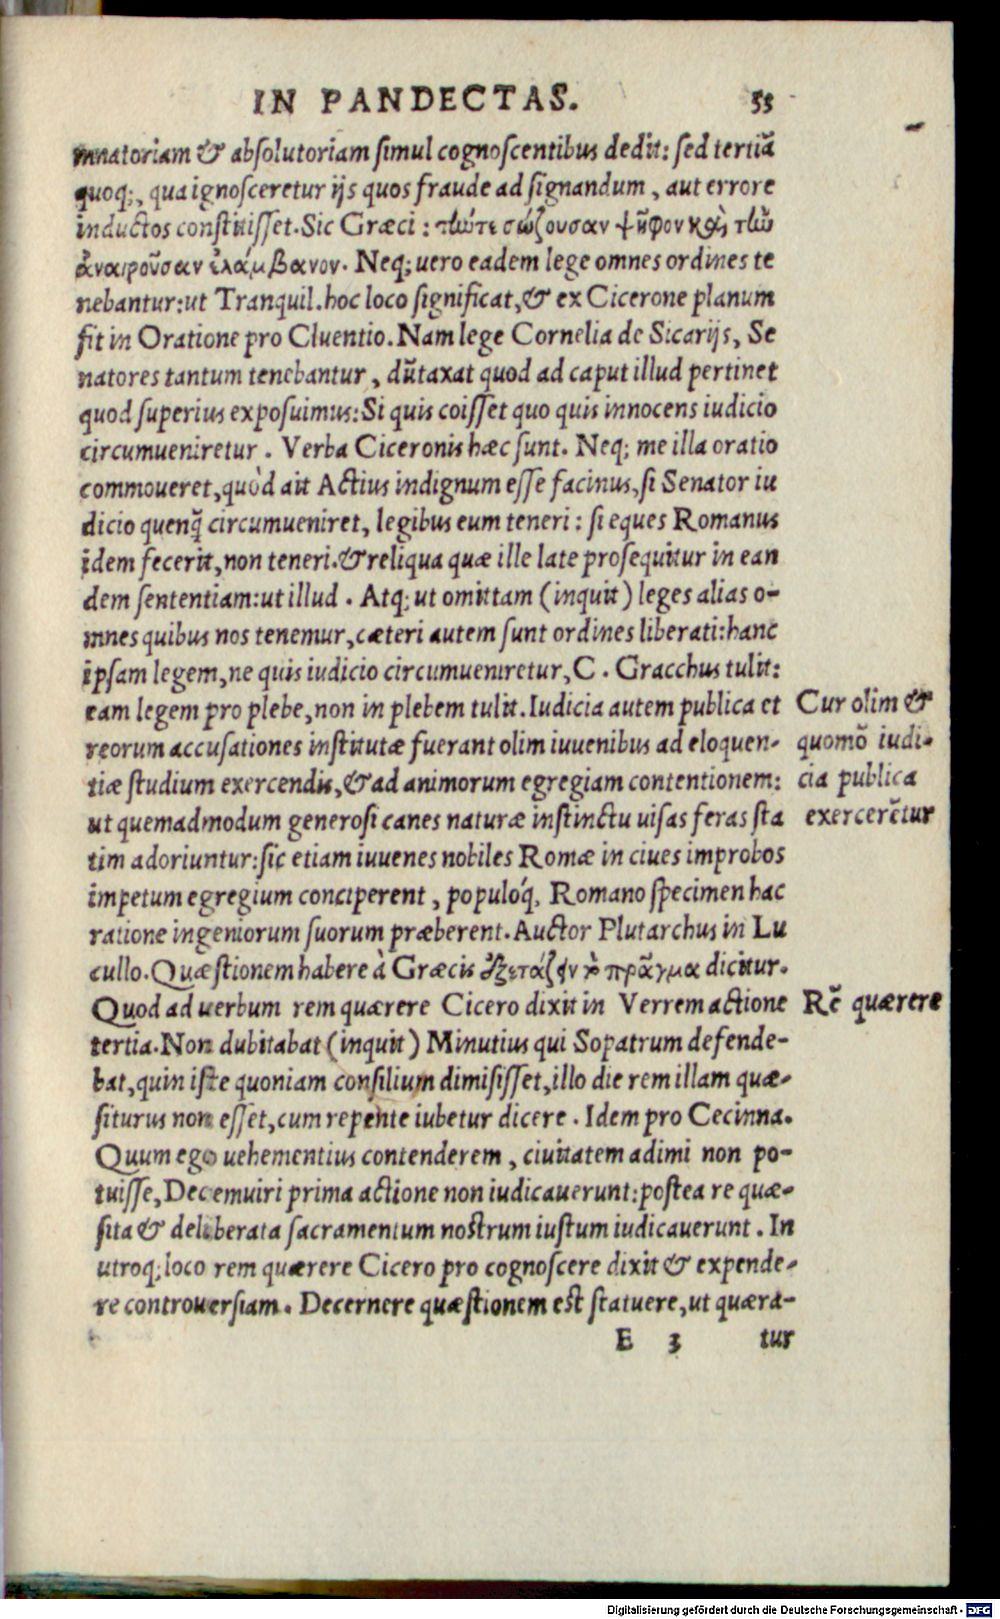 IN PANDECTAS. 55
mnatoriam & absolutoriam simul cognoscentibus dedit: sed tertiã
quoq;, qua ignosceretur ijs quos fraude ad signandum, aut errore
inductos constituisset. Sic Græci: τἰώτε σώζουσαν ψῆφον καὶ τἰὼ
ἀναιροῦσαν ἐλάμβανον. Neq; uero eadem lege omnes ordines te
nebantur: ut Tranquil. hoc loco significat, & ex Cicerone planum
fit in Oratione pro Cluentio. Nam lege Cornelia de Sicarijs, Se
natores tantum tenebantur, dũtaxat quod ad caput illud pertinet
quod superius exposuimus: Si quis coisset quo quis innocens iudicio
circumueniretur. Verba Ciceronis hæc sunt. Neq; me illa oratio
commoueret, quòd ait Actius indignum esse facinus, si Senator iu
dicio quenq̃ circumueniret, legibus eum teneri: si eques Romanus
idem fecerit, non teneri. & reliqua quæ ille late prosequitur in ean
dem sententiam: ut illud. Atq; ut omittam (inquit) leges alias o-
mnes quibus nos tenemur, cæteri autem sunt ordines liberati: hanc
ipsam legem, ne quis iudicio circumueniretur, C. Gracchus tulit:
eam legem pro plebe, non in plebem tulit. Iudicia autem publica et
reorum accusationes institutæ fuerant olim iuuenibus ad eloquen-
tiæ studium exercendis, & ad animorum egregiam contentionem:
ut quemadmodum generosi canes naturæ instinctu uisas feras sta
tim adoriuntur: sic etiam iuuenes nobiles Romæ in ciues improbos
impetum egregium conciperent, populóq; Romano specimen hac
ratione ingeniorum suorum præberent. Auctor Plutarchus in Lu
cullo. Quæstionem habere à Græcis ἐξετάζειν τὸ πρᾶγμα dicitur.
Quod ad uerbum rem quærere Cicero dixit in Verrem actione
tertia. Non dubitabat (inquit) Minutius qui Sopatrum defende-
bat, quin iste quoniam consilium dimisisset, illo die rem illam quæ-
siturus non esset, cum repente iubetur dicere. Idem pro Cecinna.
Quum ego uehementius contenderem, ciuitatem adimi non po-
tuisse, Decemuiri prima actione non iudicauerunt: postea re quæ-
sita & deliberata sacramentum nostrum iustum iudicauerunt. In
utroq; loco rem quærere Cicero pro cognoscere dixit & expende-
re controuersiam. Decernere quæstionem est statuere, ut quæra-
E 3 tur
Cur olim &
quomõ iudi-
cia publica
exercerẽtur
Rẽ quærere
Digitalisierung gefördert durch die Deutsche Forschungsgemeinschaft - DFG